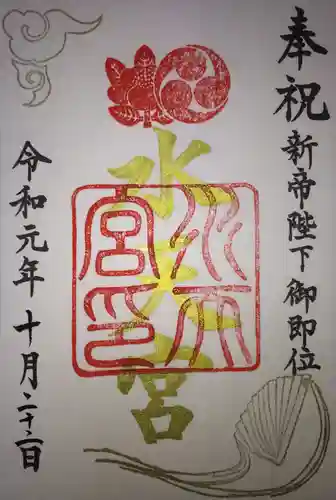 奉祝
新帝陛下御即位
水天宮
水天宮印
令和元年十月二十二日